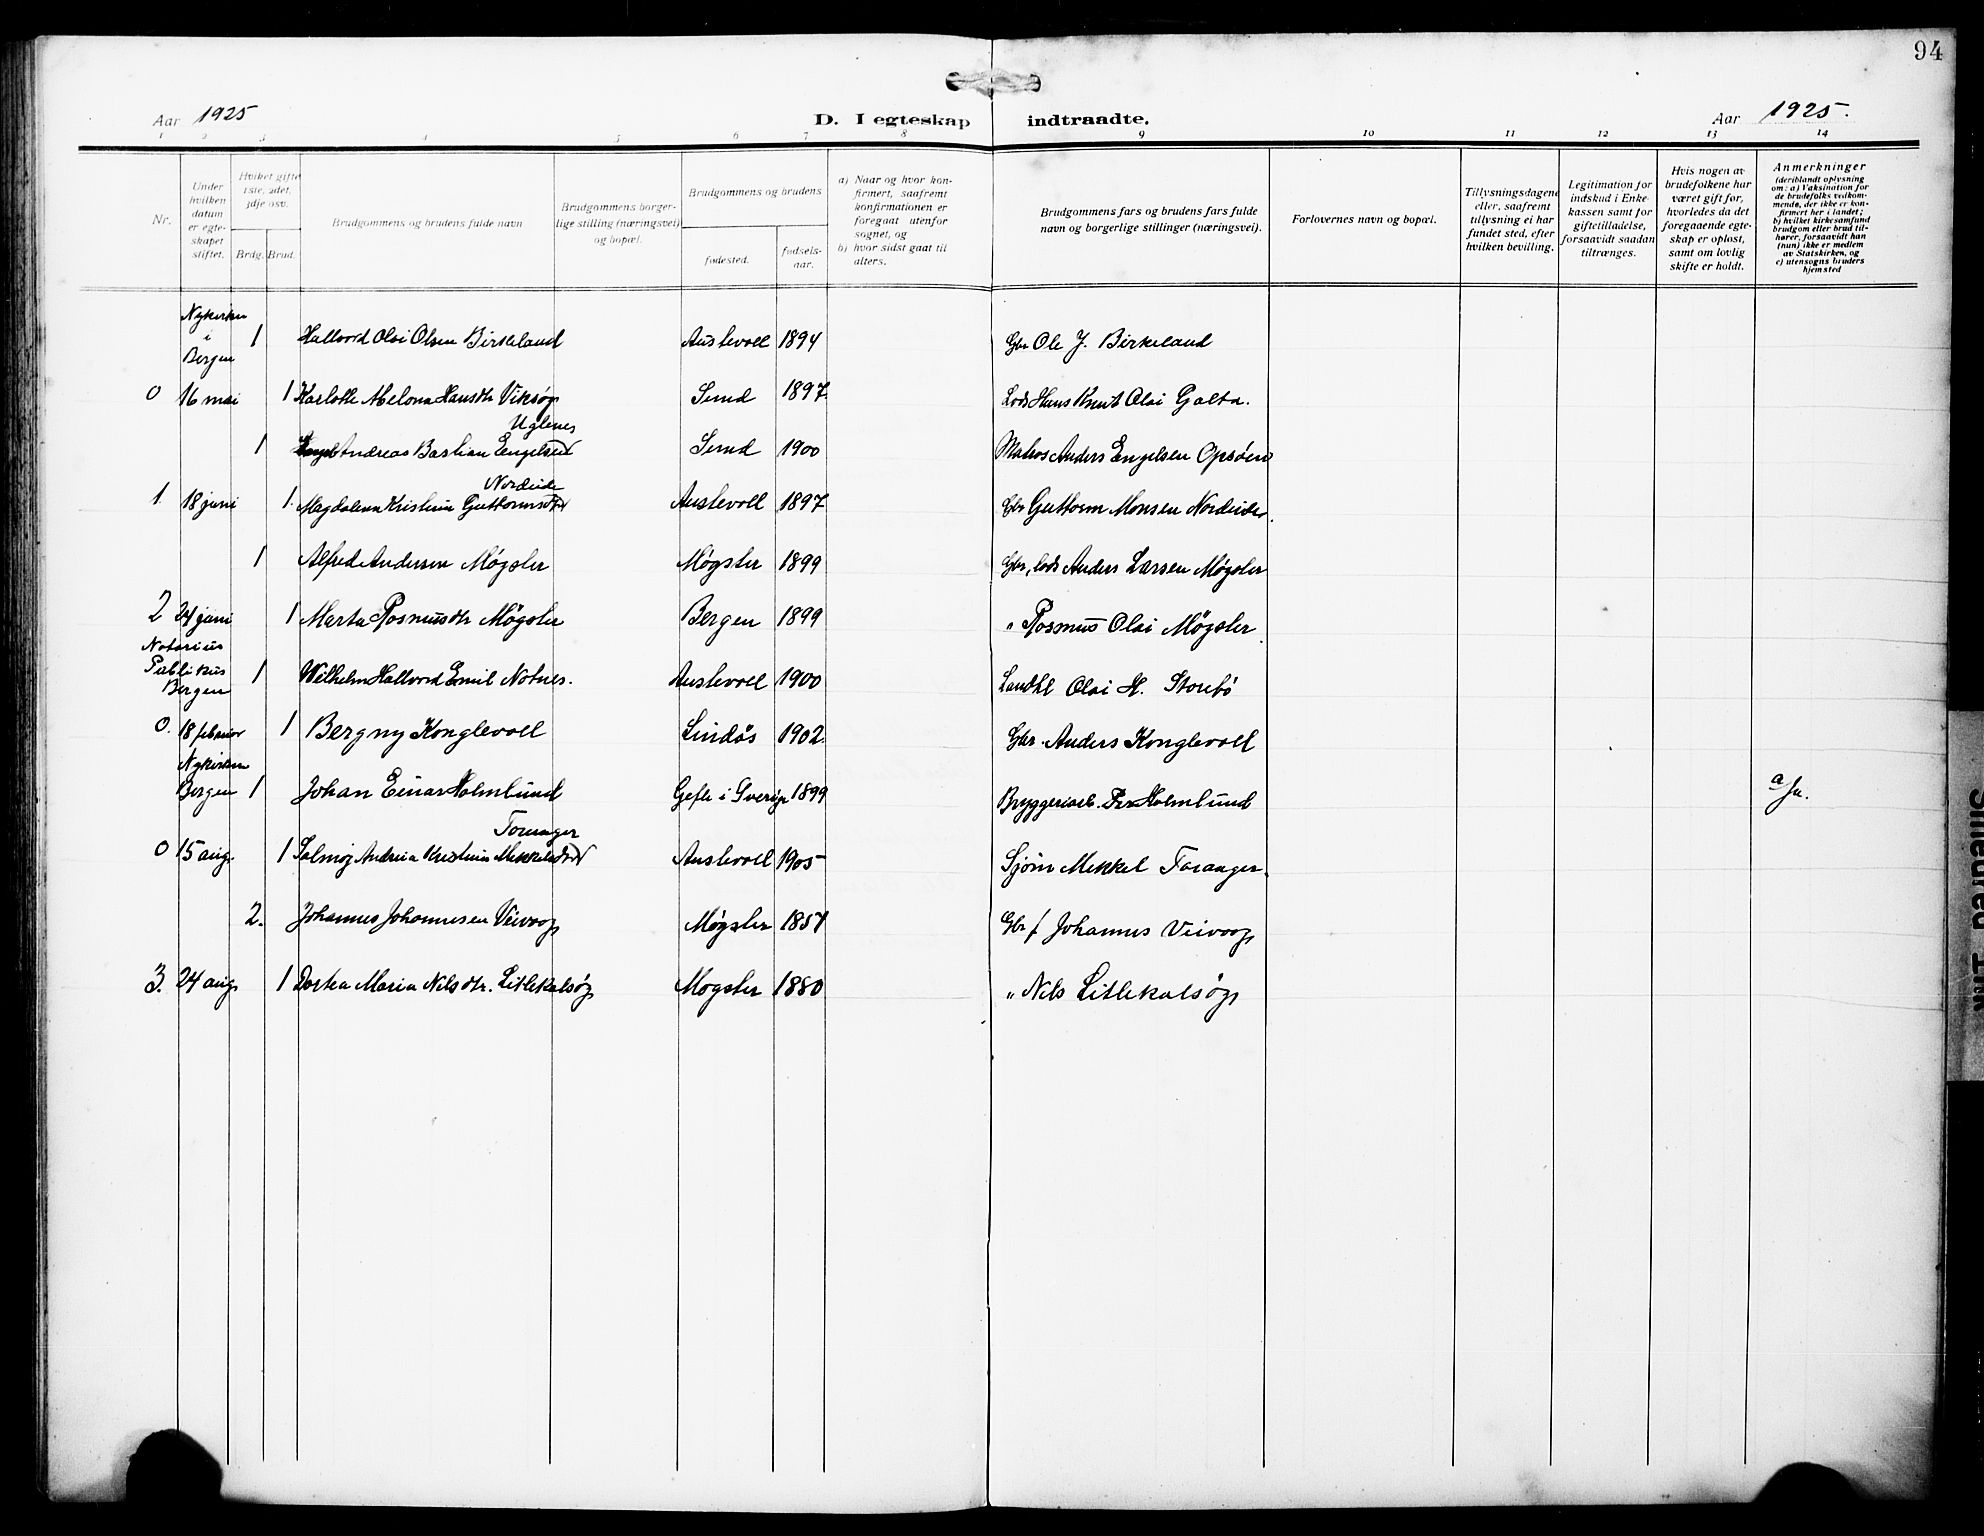 94
Aar 1925
D. I egteskap indtraadte.
Aar 1925.
1 2 3 4 5 6 7 8 9 10 11 12 13 14
Nr.
Under
hvilken
datum
er egte-
skapet
stiftet.
Hvilket gifte
1ste, 2det,
3dje osv.
Brdg. Brud.
Brudgommens og brudens fulde navn
Brudgommens borger-
lige stilling (næringsvei)
og bopæl.
Brudgommens og brudens
fødested.
fødsels-
aar.
a) Naar og hvor kon-
firmert, saafremt
konfirmationen er
foregaat utenfor
sognet, og
b) hvor sidst gaat til
alters.
Brudgommens fars og brudens fars fulde
navn og borgerlige stillinger (næringsvei).
Forlovernes navn og bopæl.
Tillysningsdagene
eller, saafremt
tillysning ei har
fundet sted, efter
hvilken bevilling.
Legitimation for
indskud i Enke-
kassen samt for
giftetilladelse,
forsaavidt saadan
tiltrænges.
Hvis nogen av
brudefolkene har
været gift før,
hvorledes da det
foregaaende egte-
skap er opløst,
samt om lovlig
skifte er holdt.
Anmerkninger
(deriblandt oplysning
om: a) Vaksination for
de brudefolks vedkom-
mende, der ikke er kon-
firmert her i landet;
b) hvilket kirkesamfund
brudgom eller brud til-
hører, forsaavidt han
(hun) ikke er medlem
av Statskirken, og
c) utensogns bruders
hjemsted
Nykirken
i
Bergen
1 Hallvord Olai Olsen Birkeland Austevoll 1894 Gbr Ole J. Birkeland
0 16 mai 1 Karlotte Abelona Hansdtr Viksøy Sund 1897 Lods Hans Knut Olai Golta.
Uglenes
1 Andreas Bastian Engelsen Sund 1900 Matros Anders Engelsen Opsøen
Nordeide
1. 18 juni 1. Magdalena Kristine Guttormsdtr Austevoll 1897 Gbr Guttorm Monsen Nordeide.
1 Alfred Andersen Møgster Møgster 1899 Gbr, lods Anders Larsen Møgster
2 24 juni 1 Marta Rasmusdtr Møgster Bergen 1899 " Rasmus Olai Møgster
Notarius
Publikus
Bergen
1 Wilhelm Hallvord Emil Notnes. Austevoll 1900 Landhl Olai H. Storebø
0. 18 februar 1 Bergny Konglevoll Lindås 1902. Gbr. Anders Konglevoll
Nykirken
Bergen 1 Johan Einar Holmlund Gefle i Sverige 1899 Bryggeriarb. Per Holmlund a/Ja.
Toranger
0 15 aug. 1 Solmøy Andrea Kristine Mikkelsdtr Austevoll 1905 Sjøm Mikkel Toranger.
2. Johannes Johannesen Veivaag Møgster 1857 Gbr f Johannes Veivaag
3. 24 aug. 1 Dortea Maria Nilsdtr. Litlekalsøy Møgster 1880 " Nils Litlekalsøy